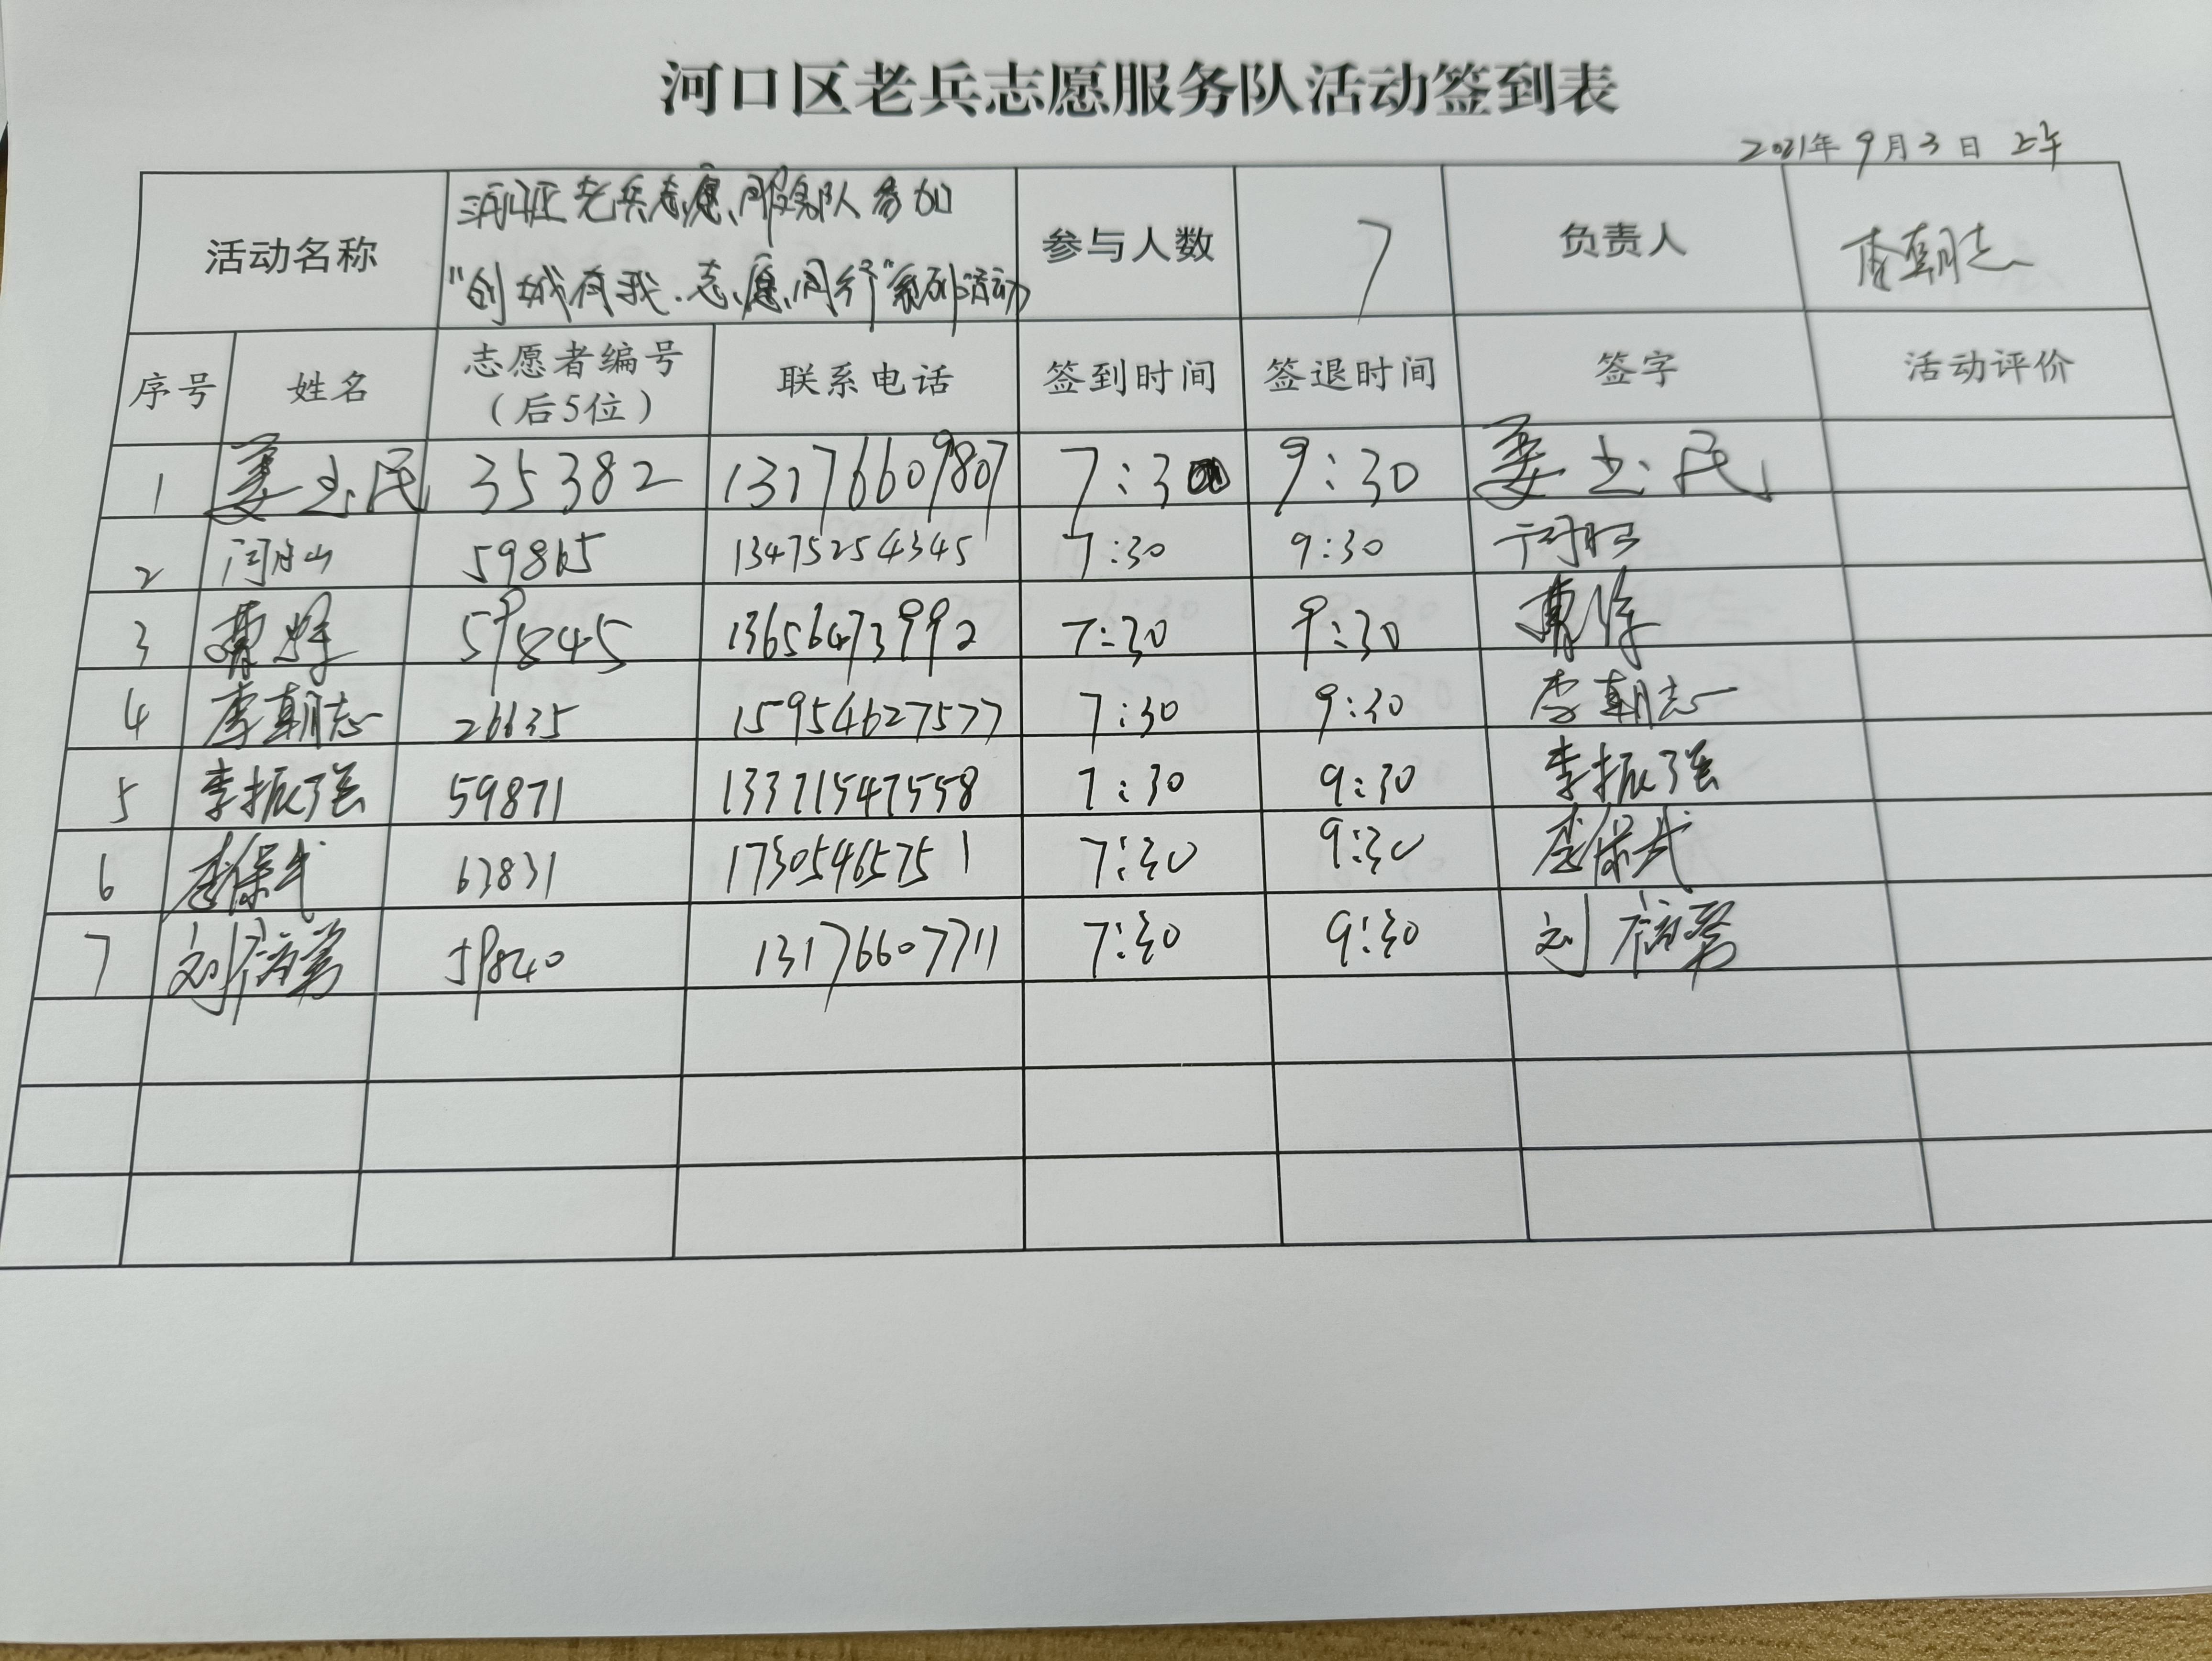 河口区老兵志愿服务队活动签到表
2021年 9月3日 上午
活动名称 河口区老兵志愿服务队参加 参与人数 7 负责人 李朝志
"创城有我、志愿同行"系列活动
序号 姓名 志愿者编号 联系电话 签到时间 签退时间 签字 活动评价
（后5位）
1 姜立民 35382 13176609807 7:30 9:30 姜立民
2 59865 13475254345 7:30 9:30
3 曹 59845 13656473992 7:30 9:30 曹
4 李朝志 26635 15954627577 7:30 9:30 李朝志
5 李振强 59871 13371547558 7:30 9:30 李振强
6 李保武 63831 17305465751 7:30 9:30 李保武
7 刘 59840 13176607711 7:30 9:30 刘